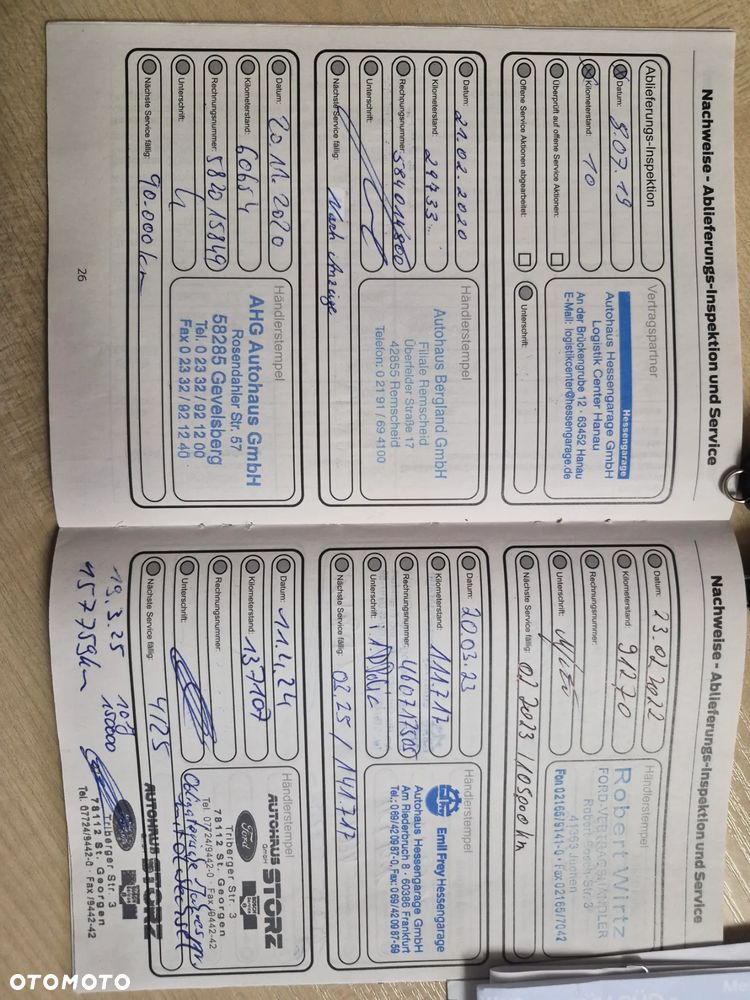 Nachweise - Ablieferungs-Inspektion und Service
Ablieferungs-Inspektion
Datum: 8.07.19
Kilometerstand: 10
Überprüft auf offene Service Aktionen:
Offene Service Aktionen abgearbeitet:
Vertragspartner
Hessengarage
Autohaus Hessengarage GmbH
Logistik Center Hanau
An der Brückengrube 12 · 63452 Hanau
E-Mail: logistikcenter@hessengarage.de
Unterschrift:
Datum: 21.02.2020
Kilometerstand: 29733
Rechnungsnummer: 584014800
Unterschrift:
Nächste Service fällig: Nach Anzeige
Händlerstempel
Autohaus Bergland GmbH
Filiale Remscheid
Überfelder Straße 17
42855 Remscheid
Telefon: 0 21 91 / 69 4100
Datum: 20.11.2020
Kilometerstand: 60654
Rechnungsnummer: 582015849
Unterschrift:
Nächste Service fällig: 90.000 km
Händlerstempel
AHG Autohaus GmbH
Rosendahler Str. 57
58285 Gevelsberg
Tel. 0 23 32 / 92 12 00
Fax 0 23 32 / 92 12 40
26
Nachweise - Ablieferungs-Inspektion und Service
Datum: 23.02.2022
Kilometerstand: 91270
Rechnungsnummer:
Unterschrift:
Nächste Service fällig: 02 2023 / 105000 km
Händlerstempel
Robert Wirtz
FORD-VERTRAGSHÄNDLER
41363 Jüchen
Fon 02165/9141-0 · Fax 02165/7042
Datum: 20.03.23
Kilometerstand: 111.717
Rechnungsnummer: 460717505
Unterschrift:
Nächste Service fällig: 03.25 / 141.717
Händlerstempel
Emil Frey Hessengarage
Autohaus Hessengarage GmbH
Am Riederbruch 8 · 60386 Frankfurt
Tel.: 0 69/42 09 87-0, Fax: 0 69/42 09 87-59
Datum: 11.4.24
Kilometerstand: 137107
Rechnungsnummer:
Unterschrift:
Nächste Service fällig: 4/25
Händlerstempel
AUTOHAUS STORZ
GmbH
Ford
BOSCH
Service
Triberger Str. 3
78112 St. Georgen
Tel. 07724/9442-0 · Fax /9442-42
19.3.25
157759 km
150000
AUTOHAUS STORZ
Triberger Str. 3
78112 St. Georgen
Tel. 07724/9442-0 · Fax /9442-42
OTOMOTO